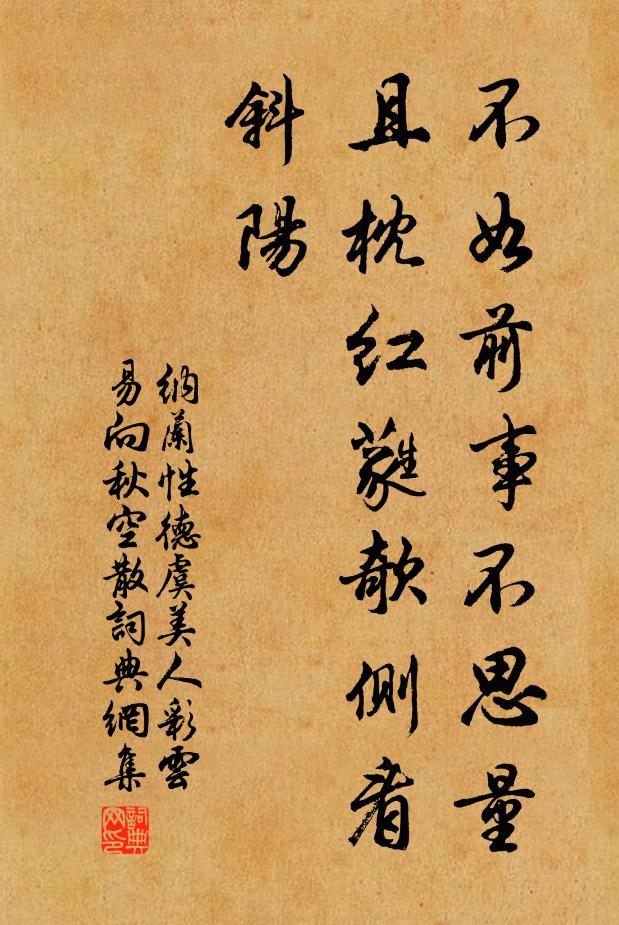 不如前事不思量
且枕紅蕤欹側看
斜陽
納蘭性德虞美人彩雲
易向秋空散詞典網集
詞典
网印